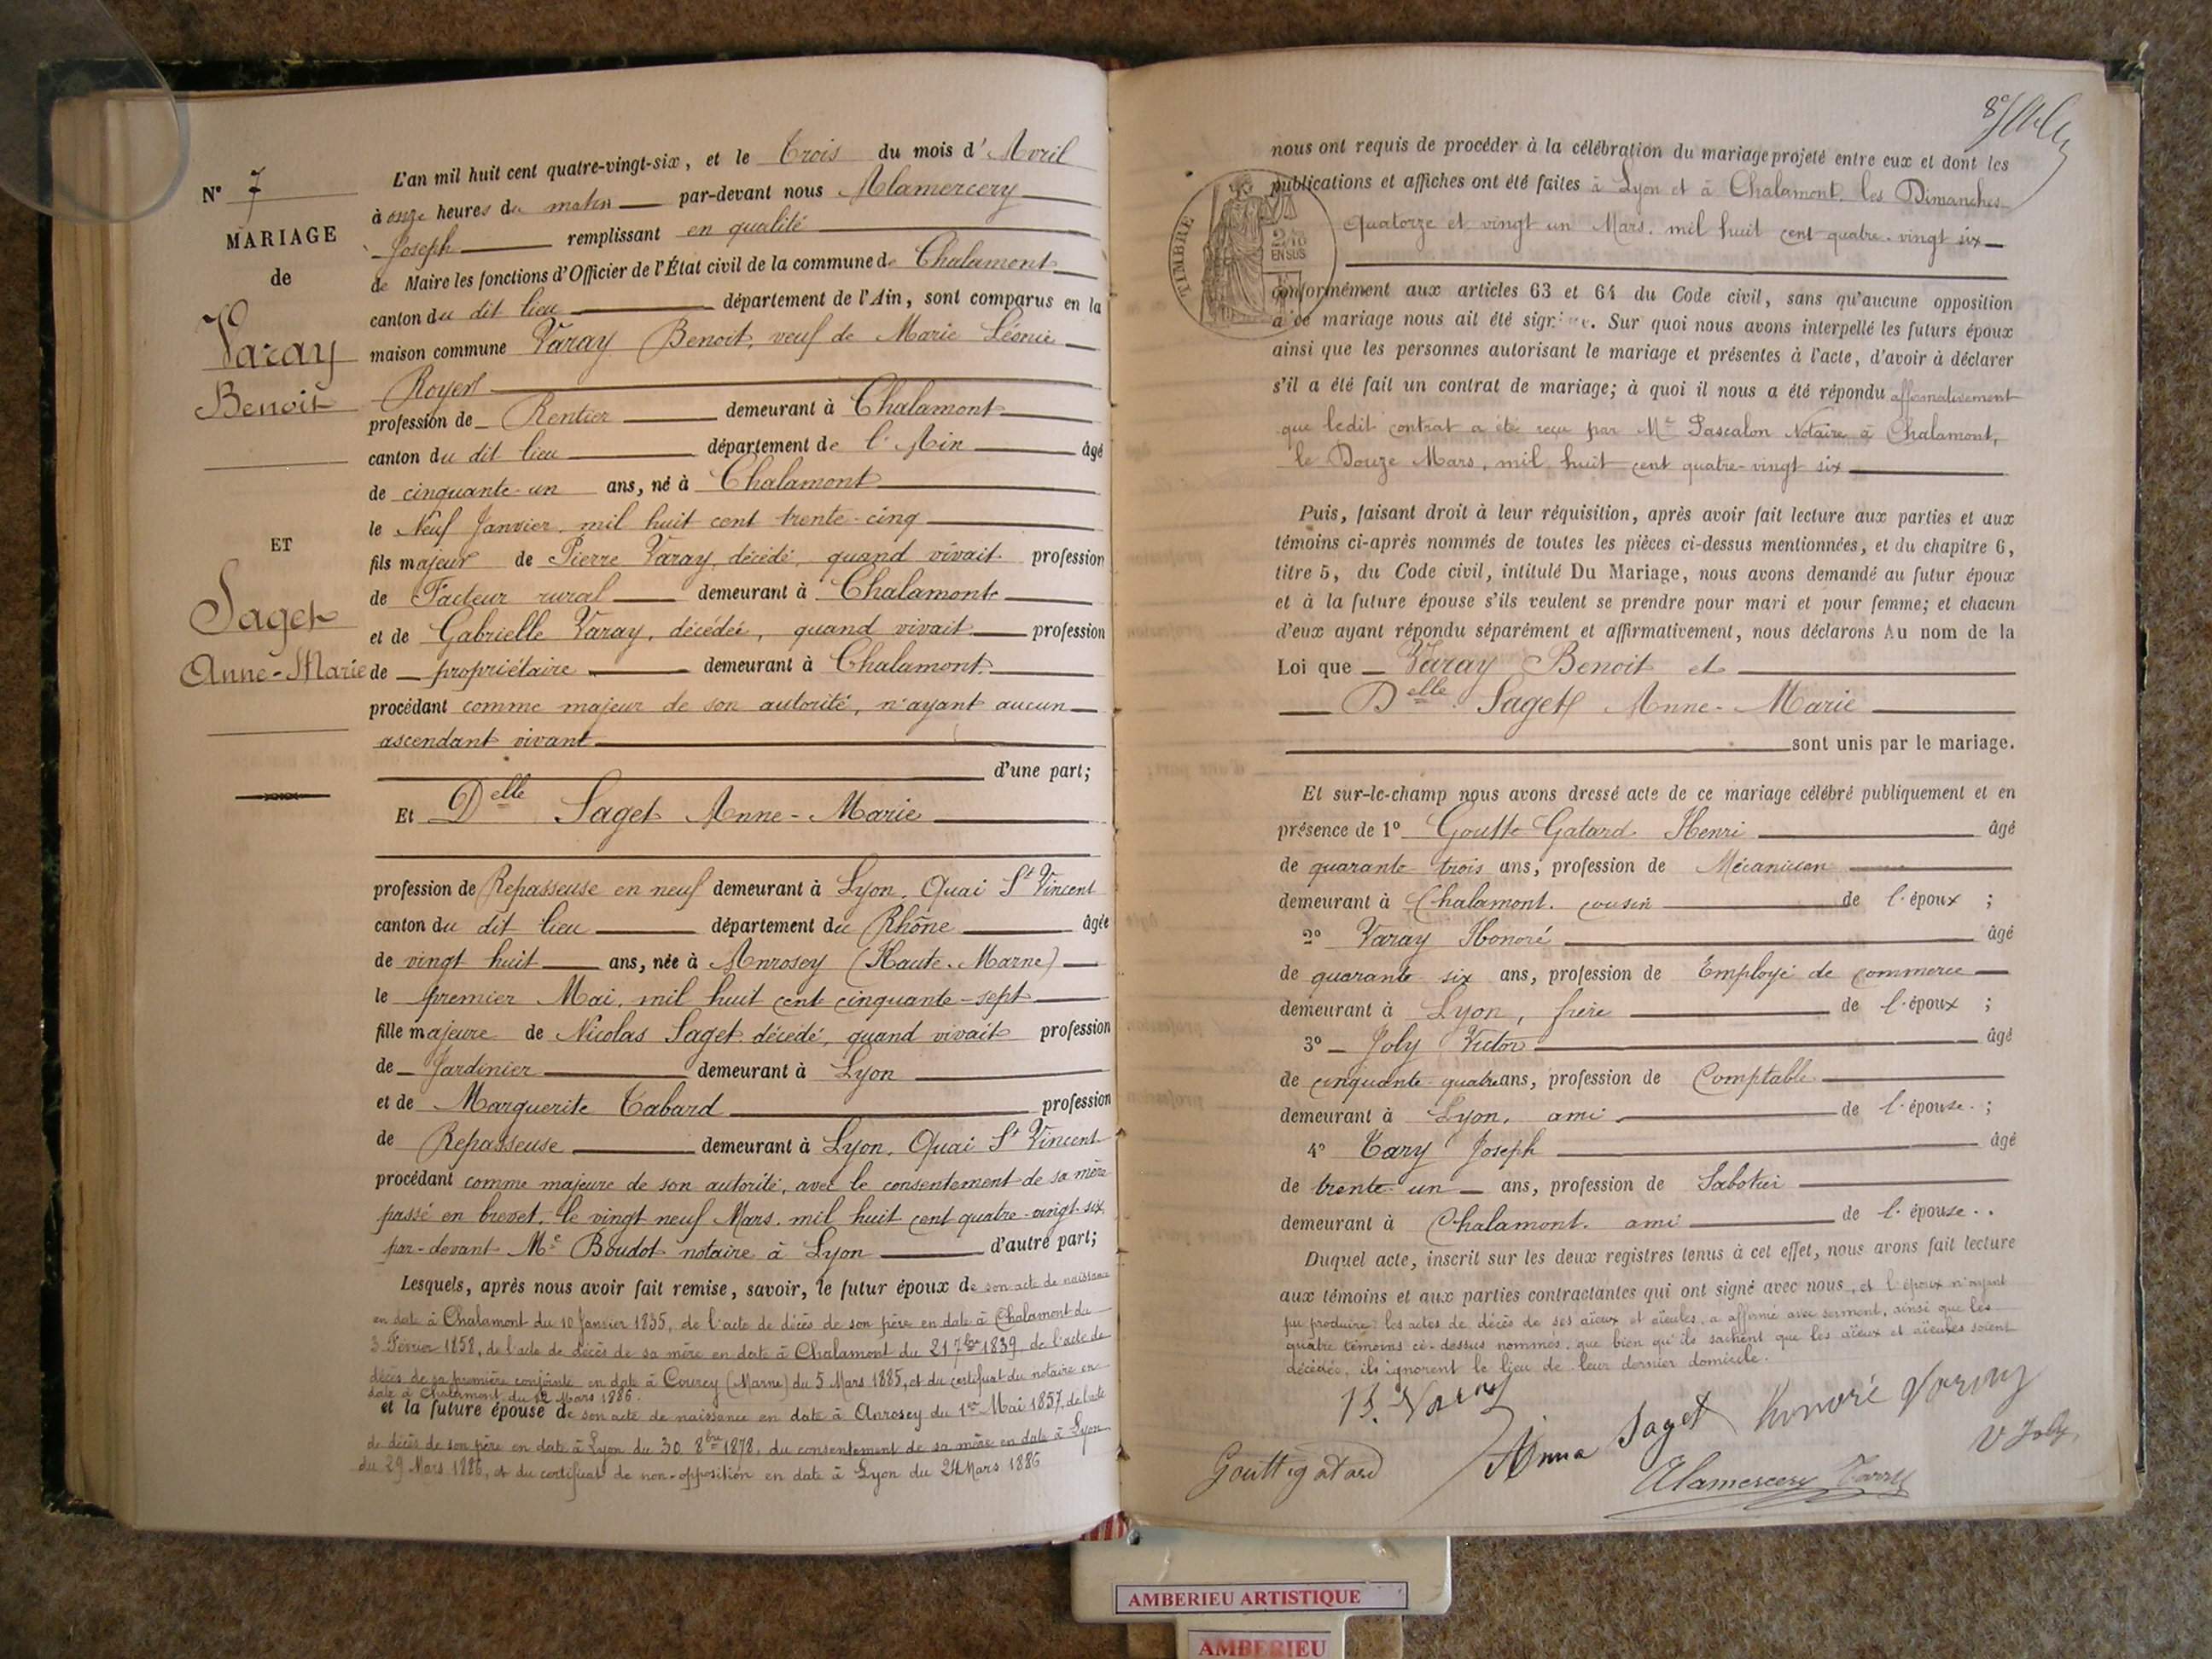 N° 7
MARIAGE
de
Varay
Benoit
ET
Saget
Anne-Marie
L'an mil huit cent quatre-vingt-six, et le Trois du mois d'Avril
à onze heures du matin par-devant nous Alamercery
Joseph remplissant en qualité
de Maire les fonctions d'Officier de l'État civil de la commune de Chalamont
canton du dit lieu département de l'Ain, sont comparus en la
maison commune Varay Benoit, veuf de Marie Léonie
Royer
profession de Rentier demeurant à Chalamont
canton du dit lieu département de l'Ain âgé
de cinquante-un ans, né à Chalamont
le Neuf Janvier, mil huit cent trente-cinq
fils majeur de Pierre Varay, décédé, quand vivait profession
de Facteur rural demeurant à Chalamont
et de Gabrielle Varay, décédée, quand vivait profession
de propriétaire demeurant à Chalamont.
procédant comme majeur de son autorité, n'ayant aucun
ascendant vivant
d'une part;
Et Delle Saget Anne-Marie
profession de Repasseuse en neuf demeurant à Lyon, Quai St Vincent
canton du dit lieu département du Rhône âgée
de vingt huit ans, née à Anrosey (Haute-Marne)
le premier Mai, mil huit cent cinquante-sept
fille majeure de Nicolas Saget décédé, quand vivait profession
de Jardinier demeurant à Lyon
et de Marguerite Tabard profession
de Repasseuse demeurant à Lyon, Quai St Vincent
procédant comme majeure de son autorité, avec le consentement de sa mère
passé en brevet, le vingt neuf Mars, mil huit cent quatre-vingt-six,
par-devant Me Boudot notaire à Lyon d'autre part;
Lesquels, après nous avoir fait remise, savoir, le futur époux de son acte de naissance
en date à Chalamont du 10 Janvier 1835, de l'acte de décès de son père en date à Chalamont du
3 Février 1858, de l'acte de décès de sa mère en date à Chalamont du 21 7bre 1839, de l'acte de
décès de sa première conjointe en date à Courcy (Marne) du 5 Mars 1885, et du certificat du notaire en
date à Chalamont du 12 Mars 1886.
et la future épouse de son acte de naissance en date à Anrosey du 1er Mai 1857, de l'acte
de décès de son père en date à Lyon du 30 8bre 1878, du consentement de sa mère en date à Lyon
du 29 Mars 1886, et du certificat de non-opposition en date à Lyon du 24 Mars 1886
nous ont requis de procéder à la célébration du mariage projeté entre eux et dont les
publications et affiches ont été faites à Lyon et à Chalamont, les Dimanches
quatorze et vingt un Mars, mil huit cent quatre-vingt six
TIMBRE
EN SUS
conformément aux articles 63 et 64 du Code civil, sans qu'aucune opposition
à ce mariage nous ait été signifiée. Sur quoi nous avons interpellé les futurs époux
ainsi que les personnes autorisant le mariage et présentes à l'acte, d'avoir à déclarer
s'il a été fait un contrat de mariage; à quoi il nous a été répondu affirmativement
que ledit contrat a été reçu par Me Pascalon Notaire à Chalamont,
le Douze Mars, mil huit cent quatre-vingt six
Puis, faisant droit à leur réquisition, après avoir fait lecture aux parties et aux
témoins ci-après nommés de toutes les pièces ci-dessus mentionnées, et du chapitre 6,
titre 5, du Code civil, intitulé Du Mariage, nous avons demandé au futur époux
et à la future épouse s'ils veulent se prendre pour mari et pour femme; et chacun
d'eux ayant répondu séparément et affirmativement, nous déclarons Au nom de la
Loi que Varay Benoit et
Delle Saget Anne-Marie
sont unis par le mariage.
Et sur-le-champ nous avons dressé acte de ce mariage célébré publiquement et en
présence de 1° Goutte Gatard Henri âgé
de quarante trois ans, profession de Mécanicien
demeurant à Chalamont. cousin de l'époux ;
2° Varay Honoré âgé
de quarante six ans, profession de Employé de commerce
demeurant à Lyon, frère de l'époux ;
3° Joly Victor âgé
de cinquante quatre ans, profession de Comptable
demeurant à Lyon, ami de l'épouse ;
4° Tary Joseph âgé
de trente un ans, profession de Sabotier
demeurant à Chalamont. ami de l'épouse.
Duquel acte, inscrit sur les deux registres tenus à cet effet, nous avons fait lecture
aux témoins et aux parties contractantes qui ont signé avec nous, et l'époux n'ayant
pu produire les actes de décès de ses aïeux et aïeules, a affirmé avec serment, ainsi que les
quatre témoins ci-dessus nommés, que bien qu'ils sachent que les aïeux et aïeules soient
décédés, ils ignorent le lieu de leur dernier domicile.
B. Varay
Anna Saget honoré Varay
V Joly
Gouttegatard
Alamercery Tarry
AMBERIEU ARTISTIQUE
AMBERIEU